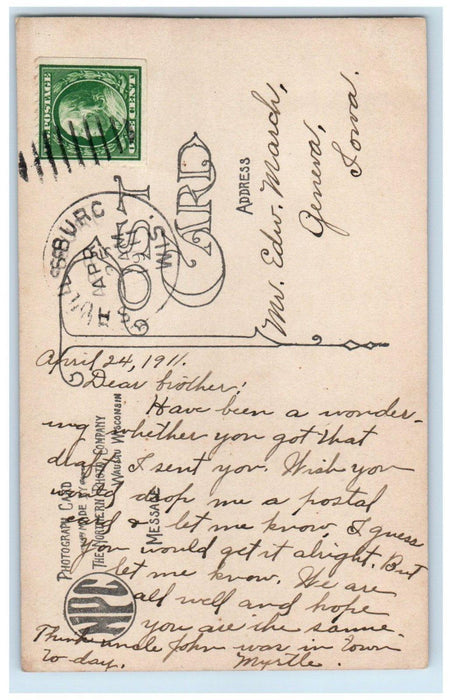 U.S. POSTAGE
ONE CENT
BURG
APR
25
AM
1911
WIS.
POST CARD
ADDRESS
Mr. Edw. March,
Geneva,
Iowa.
PHOTOGRAPH CARD
MADE BY
THE NORTHERN PHOTO COMPANY
WAUSAU WISCONSIN
NPC
MESSAGE
April 24, 1911.
Dear brother:
Have been a wonder-
ing whether you got that
draft I sent you. Wish you
would drop me a postal
card & let me know. I guess
you would get it alright. But
let me know. We are
all well and hope
you are the same.
Think uncle John was in town
to day. Myrtle.